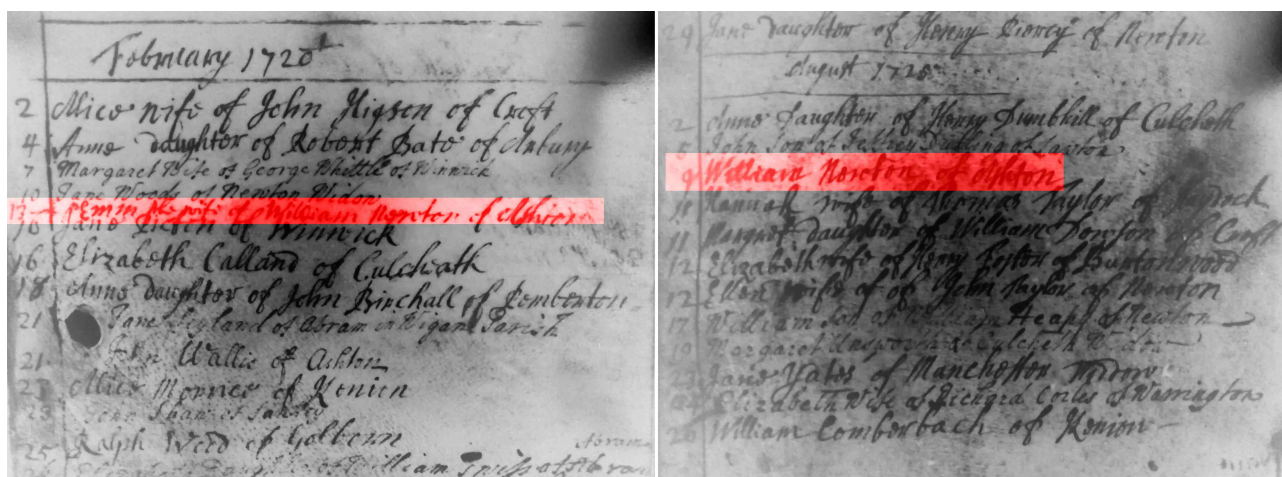 February 1720
2 Alice wife of John Higson of Croft
4 Anne daughter of Robert Bate of Arbury
7 Margaret Wife of George Whittle of Winwick
10 Jane Woods of Newton Widow
13 the wife of William Newton of Ashton
16 Jane of Winwick
16 Elizabeth Calland of Culcheath
18 Anne daughter of John Birchall of Pemberton
21 Jane Leyland of Abram in Wigan Parish
21 John Wallis of Ashton
23 Alice Morrice of Kenion
23
25 Ralph Weed of Golborn
Abram
daughter of William of Abram
29 Jane Daughter of Henry Piercy of Newton
August 1720
2 Anne Daughter of Henry Dumbhill of Culcheth
5 John Son of Jeffrey of Lawton
9 William Newton of Ashton
Hannah wife of Thomas Taylor of Haydock
11 Margret daughter of William Dowson of Croft
12 Elizabeth wife of Henry Foster of Burtonwood
12 Ellen wife of of John Naylor of Newton
17 William Son of William Heap of Newton
19 Margaret Unsworth of Culcheth Widow
23 Jane Yates of Manchester Widow
24 Elizabeth Wife of Richard Corles of Warrington
26 William Comberbach of Kenion